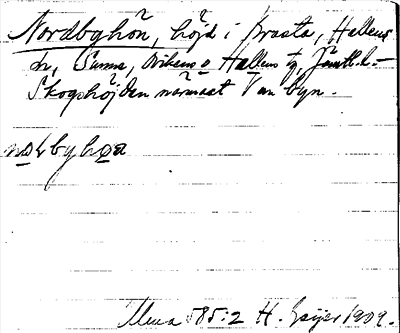 Nordbyhön, höjd i Brasta, Hallens
sn, Sunne, Ovikens o Hallens tg, Jämtl. l. –
Skogshöjden närmast V om byn.
nolbyhöa
Ulma 585:2 H. Geijer 1909.